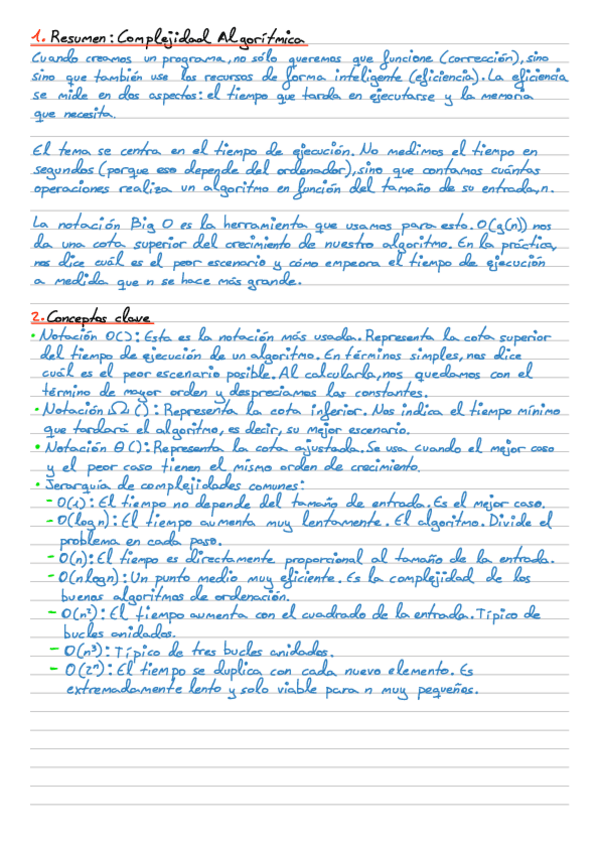 1. Resumen: Complejidad Algorítmica
Cuando creamos un programa, no sólo queremos que funcione (corrección), sino
sino que también use los recursos de forma inteligente (eficiencia). La eficiencia
se mide en dos aspectos: el tiempo que tarda en ejecutarse y la memoria
que necesita.
El tema se centra en el tiempo de ejecución. No medimos el tiempo en
segundos (porque eso depende del ordenador), sino que contamos cuántas
operaciones realiza un algoritmo en función del tamaño de su entrada, n.
La notación Big O es la herramienta que usamos para esto. O(g(n)) nos
da una cota superior del crecimiento de nuestro algoritmo. En la práctica,
nos dice cuál es el peor escenario y cómo empeora el tiempo de ejecución
a medida que n se hace más grande.
2. Conceptos clave
• Notación O(): Esta es la notación más usada. Representa la cota superior
del tiempo de ejecución de un algoritmo. En términos simples, nos dice
cuál es el peor escenario posible. Al calcularla, nos quedamos con el
término de mayor orden y despreciamos las constantes.
• Notación Ω(): Representa la cota inferior. Nos indica el tiempo mínimo
que tardará el algoritmo, es decir, su mejor escenario.
• Notación θ(): Representa la cota ajustada. Se usa cuando el mejor caso
y el peor caso tienen el mismo orden de crecimiento.
• Jerarquía de complejidades comunes:
- O(1): El tiempo no depende del tamaño de entrada. Es el mejor caso.
- O(log n): El tiempo aumenta muy lentamente. El algoritmo. Divide el
problema en cada paso.
- O(n): El tiempo es directamente proporcional al tamaño de la entrada.
- O(n log n): Un punto medio muy eficiente. Es la complejidad de los
buenos algoritmos de ordenación.
- O(n²): El tiempo aumenta con el cuadrado de la entrada. Típico de
bucles anidados.
- O(n³): Típico de tres bucles anidados.
- O(2ⁿ): El tiempo se duplica con cada nuevo elemento. Es
extremadamente lento y solo viable para n muy pequeños.